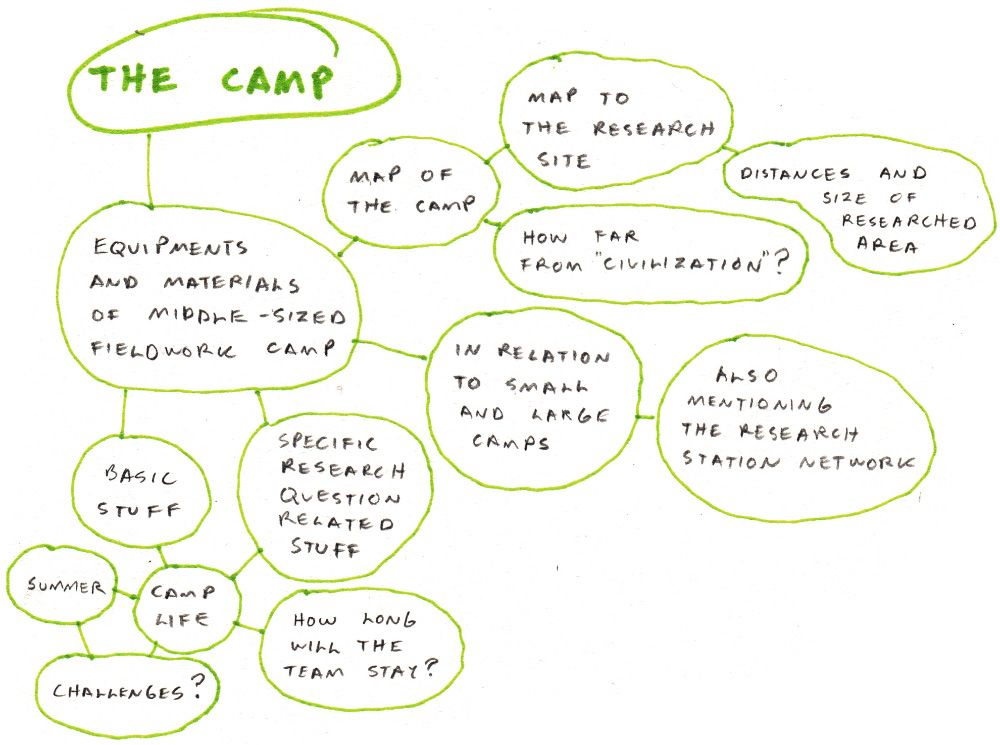 THE CAMP
MAP TO
THE RESEARCH
SITE
MAP OF
THE CAMP
DISTANCES AND
SIZE OF
RESEARCHED
AREA
HOW FAR
FROM "CIVILIZATION"?
EQUIPMENTS
AND MATERIALS
OF MIDDLE-SIZED
FIELDWORK CAMP
IN RELATION
TO SMALL
AND LARGE
CAMPS
ALSO
MENTIONING
THE RESEARCH
STATION NETWORK
BASIC
STUFF
SPECIFIC
RESEARCH
QUESTION
RELATED
STUFF
SUMMER
CAMP
LIFE
HOW LONG
WILL THE
TEAM STAY?
CHALLENGES?